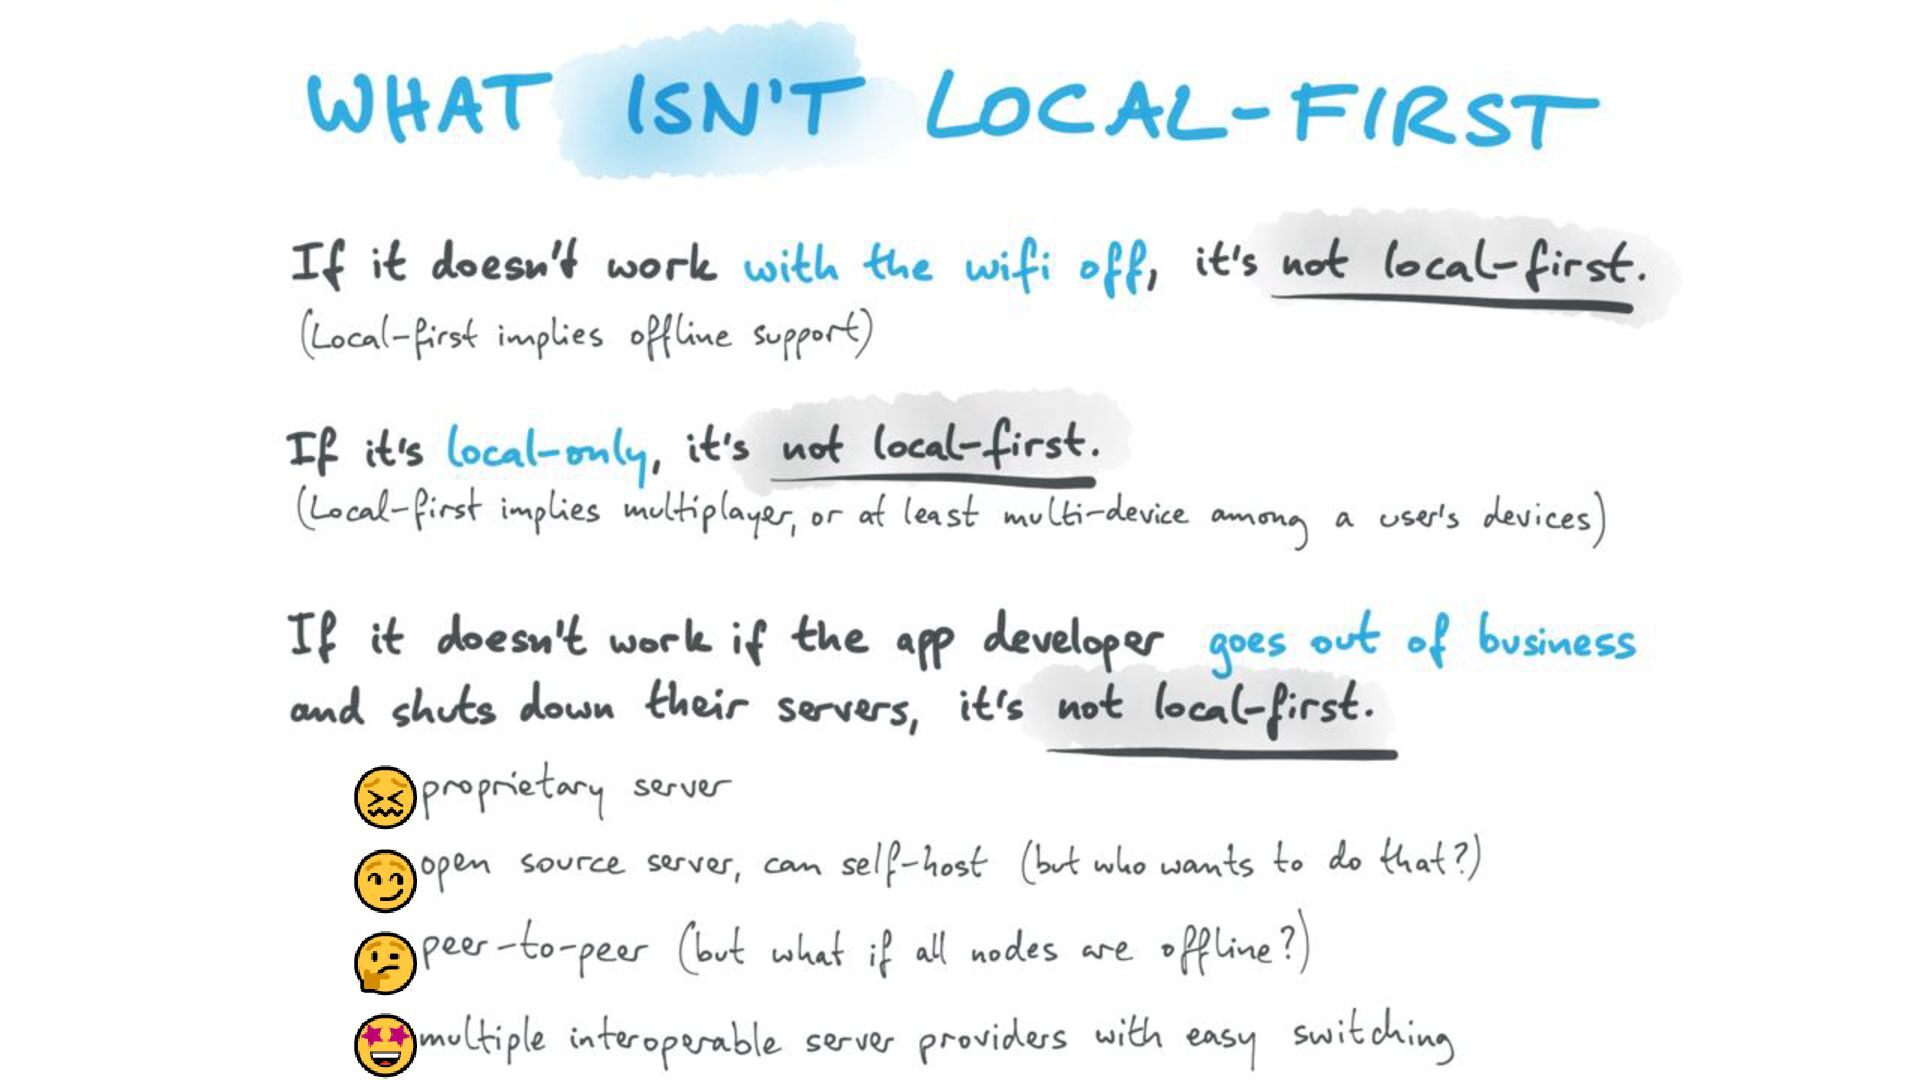 WHAT ISN'T LOCAL-FIRST
If it doesn't work with the wifi off, it's not local-first.
(Local-first implies offline support)
If it's local-only, it's not local-first.
(Local-first implies multiplayer, or at least multi-device among a user's devices)
If it doesn't work if the app developer goes out of business
and shuts down their servers, it's not local-first.
😖 proprietary server
😏 open source server, can self-host (but who wants to do that?)
🤔 peer-to-peer (but what if all nodes are offline?)
🤩 multiple interoperable server providers with easy switching